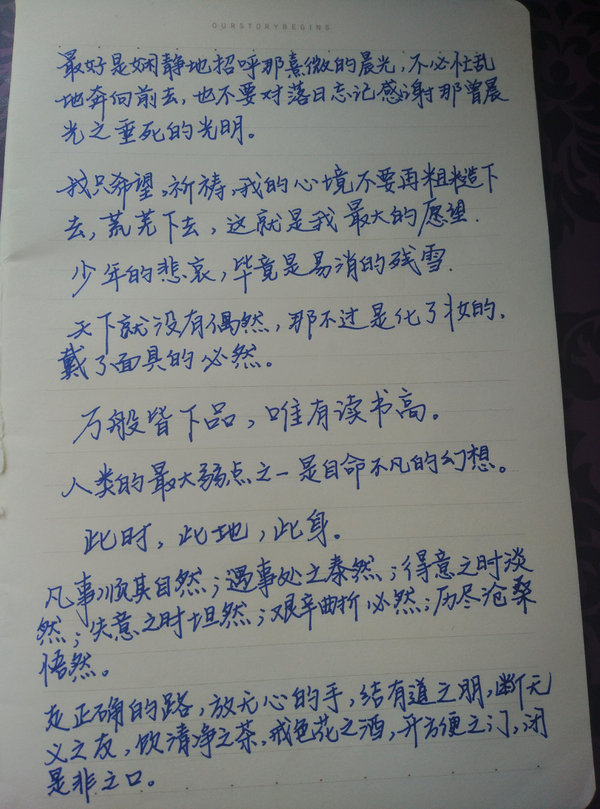 OURSTORYBEGINS
最好是娴静地招呼那熹微的晨光,不必忙乱
地奔向前去,也不要对落日忘记感谢那曾晨
光之垂死的光明。
我只希望,祈祷,我的心境不要再粗糙下
去,荒芜下去,这就是我最大的愿望.
少年的悲哀,毕竟是易消的残雪.
天下就没有偶然,那不过是化了妆的,
戴了面具的必然。
万般皆下品,唯有读书高。
人类的最大弱点之一是自命不凡的幻想。
此时,此地,此身。
凡事顺其自然;遇事处之泰然;得意之时淡
然;失意之时坦然;艰辛曲折必然;历尽沧桑
悟然。
走正确的路,放无心的手,结有道之朋,断无
义之友,饮清净之茶,戒色花之酒,开方便之门,闭
是非之口。